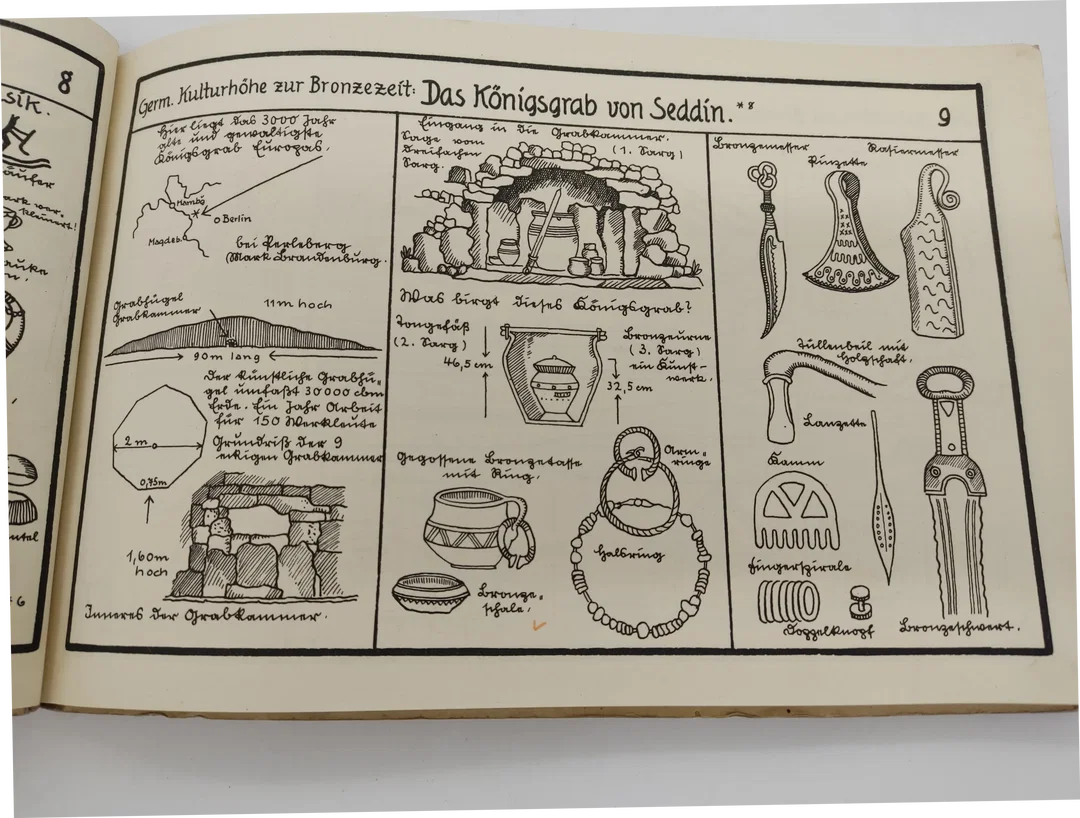 8
sik.
äufer
Germ. Kulturhöhe zur Bronzezeit: Das Königsgrab von Seddin. *8
9
Hier liegt das 3000 Jahr
alte und gewaltigste
Königsgrab Europas.
Hambg
Berlin
Magdeb.
bei Perleberg
(Mark Brandenburg.
Grabhügel
Grabkammer
11m hoch
90m lang
Der künstliche Grabhü-
gel umfaßt 30000 cbm
Erde. Ein Jahr Arbeit
für 150 Werkleute
Grundriß der 9
eckigen Grabkammer
2 m
0,75m
1,60m
hoch
Inneres der Grabkammer.
Eingang in die Grabkammer.
Sage vom
dreifachen
Sarg.
(1. Sarg)
Was birgt dieses Königsgrab?
Tongefäß
(2. Sarg)
46,5 cm
Bronzeurne
(3. Sarg)
ein Kunst-
werk.
32,5 cm
Gegossene Bronzetasse
mit Ring.
Arm-
ringe
Halsring
Bronze-
schale.
Bronzemesser
Pinzette
Rasiermesser
Tüllenbeil mit
Holzschaft.
Lanzette
Kamm
Fingerspirale
Doppelknopf
Bronzeschwert.